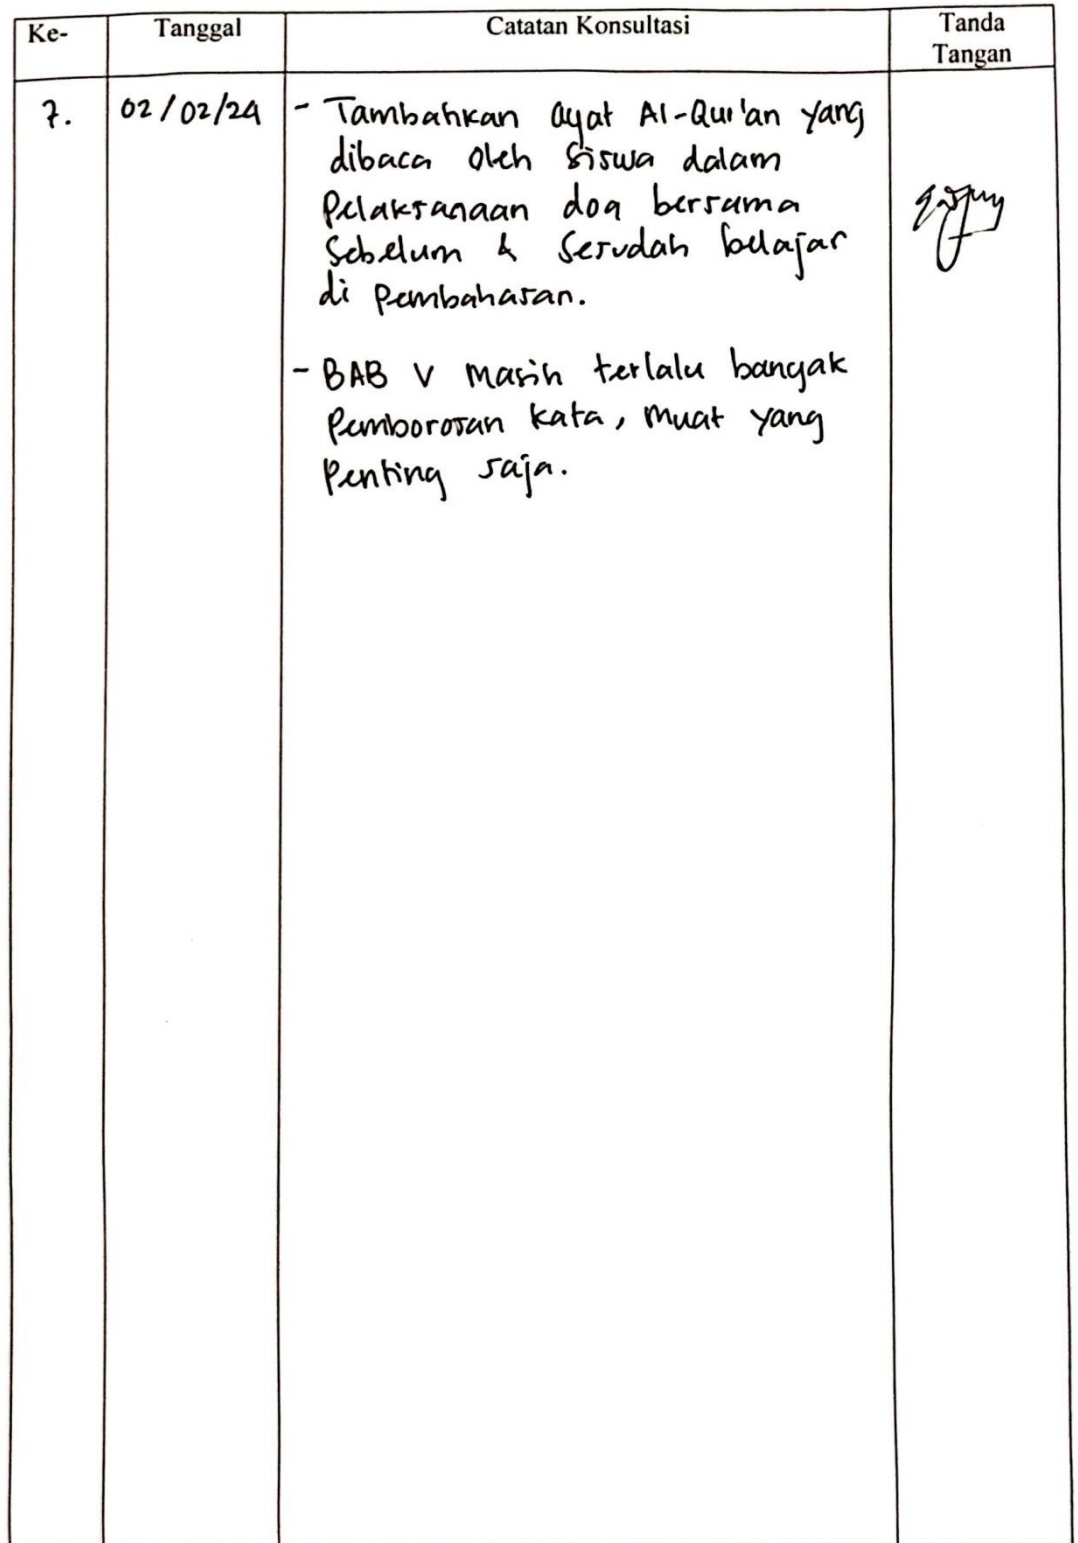 Ke- Tanggal Catatan Konsultasi Tanda
Tangan
7. 02/02/24 - Tambahkan ayat Al-Qur'an yang
dibaca oleh siswa dalam
Pelaksanaan doa bersama
Sebelum & Sesudah belajar
di Pembahasan.
- BAB V Masih terlalu banyak
Pemborosan kata, Muat yang
Penting saja.